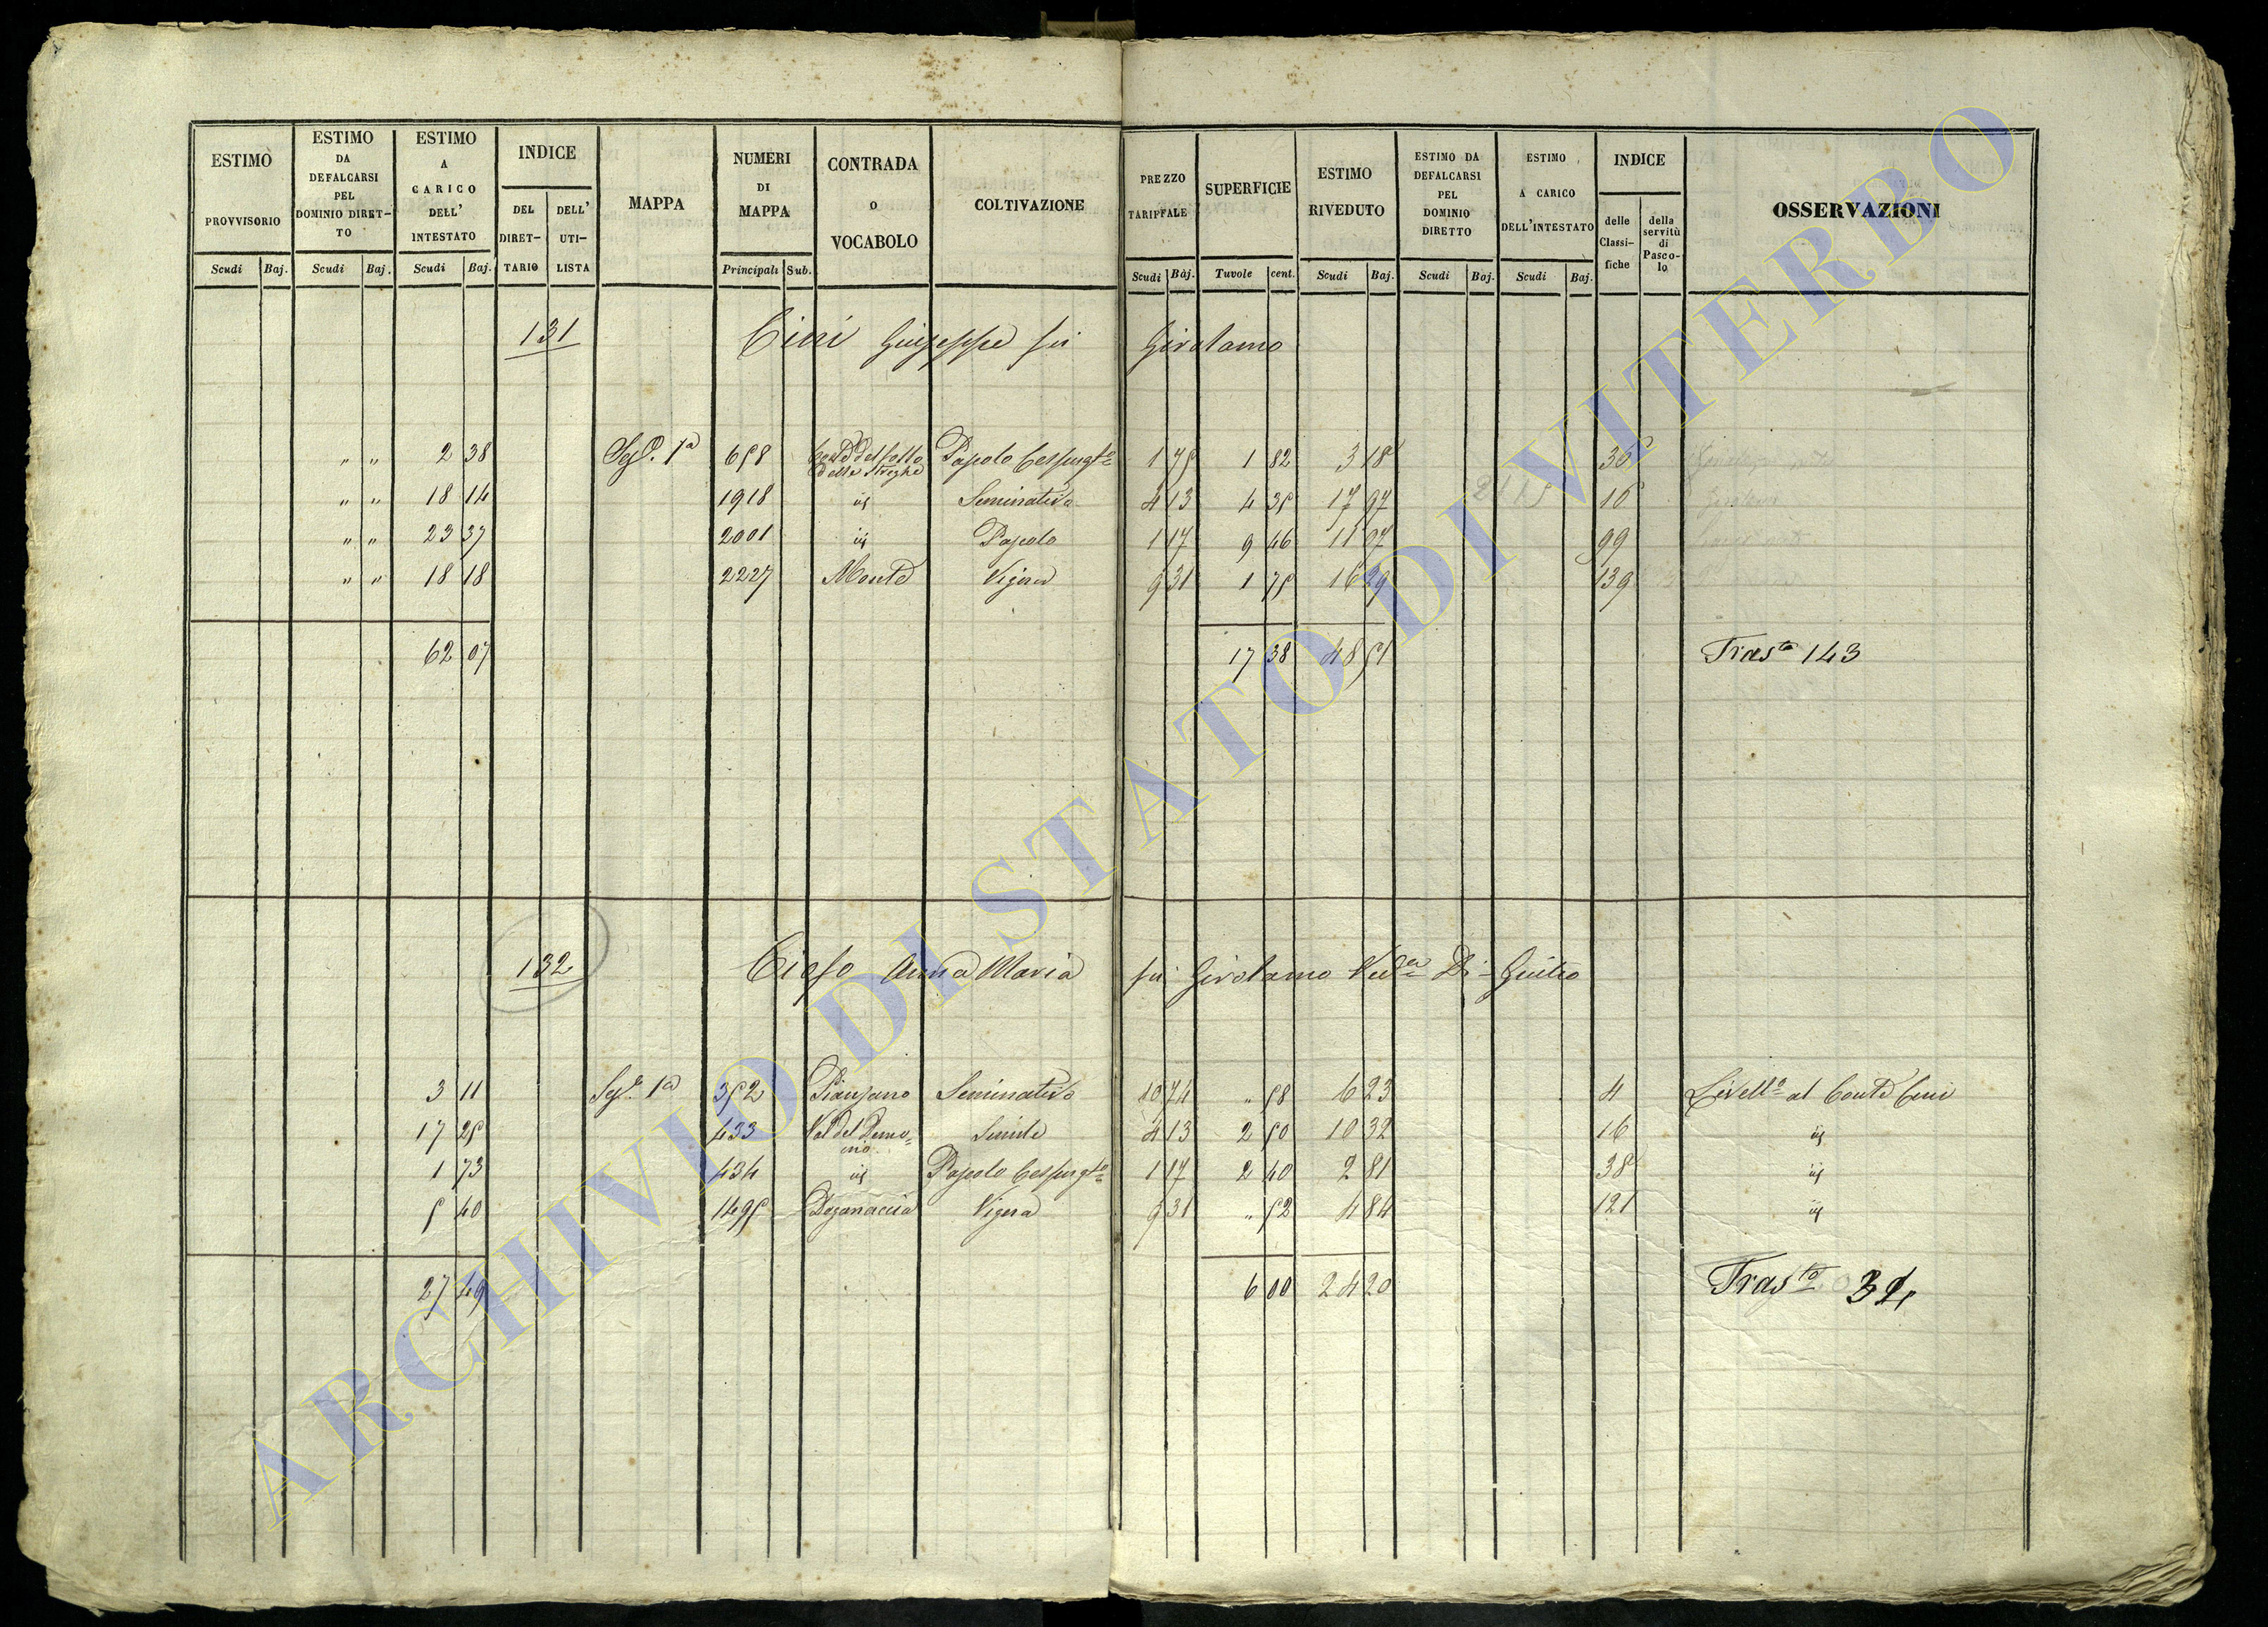 ESTIMO PROVVISORIO | ESTIMO DA DEFALCARSI PEL DOMINIO DIRETTO | ESTIMO A CARICO DELL' INTESTATO | INDICE | MAPPA | NUMERI DI MAPPA | CONTRADA O VOCABOLO | COLTIVAZIONE | PREZZO TARIFFALE | SUPERFICIE | ESTIMO RIVEDUTO | ESTIMO DA DEFALCARSI PEL DOMINIO DIRETTO | ESTIMO A CARICO DELL'INTESTATO | INDICE | OSSERVAZIONI
DEL DIRETTARIO | DELL' UTILISTA | delle Classifiche | della servitù di Pascolo
Scudi | Baj. | Scudi | Baj. | Scudi | Baj. | Principali | Sub. | Scudi | Baj. | Tavole | cent. | Scudi | Baj. | Scudi | Baj. | Scudi | Baj.
131 Cini Giuseppe fu Girolamo
" " 2 38 1ª 658 delle Streghe Pascolo Cespugto 1 75 1 82 3 18
" " 18 14 1918 Seminativo 4 13 4 35 17 97 16
" " 23 37 2001 Pascolo 1 17 9 46 11 07 99
" " 18 18 2227 Monte Vigna 9 31 1 75 16 29 139
62 07 17 38 48 51 Trasto 143
132 Anna Maria fu Girolamo Veda Di Giulio
3 11 1ª 352 Pianzano Seminativo 10 74 " 58 6 23 4 Livello al Conte Cini
17 25 433 Val del Demonio 4 13 2 50 10 32 16
1 73 434 Pascolo Cespugto 1 17 2 40 2 81 38
5 40 1495 Doganaccia Vigna 9 31 " 52 4 84 121
27 49 6 00 24 20 Trasto
ARCHIVIO DI STATO DI VITERBO